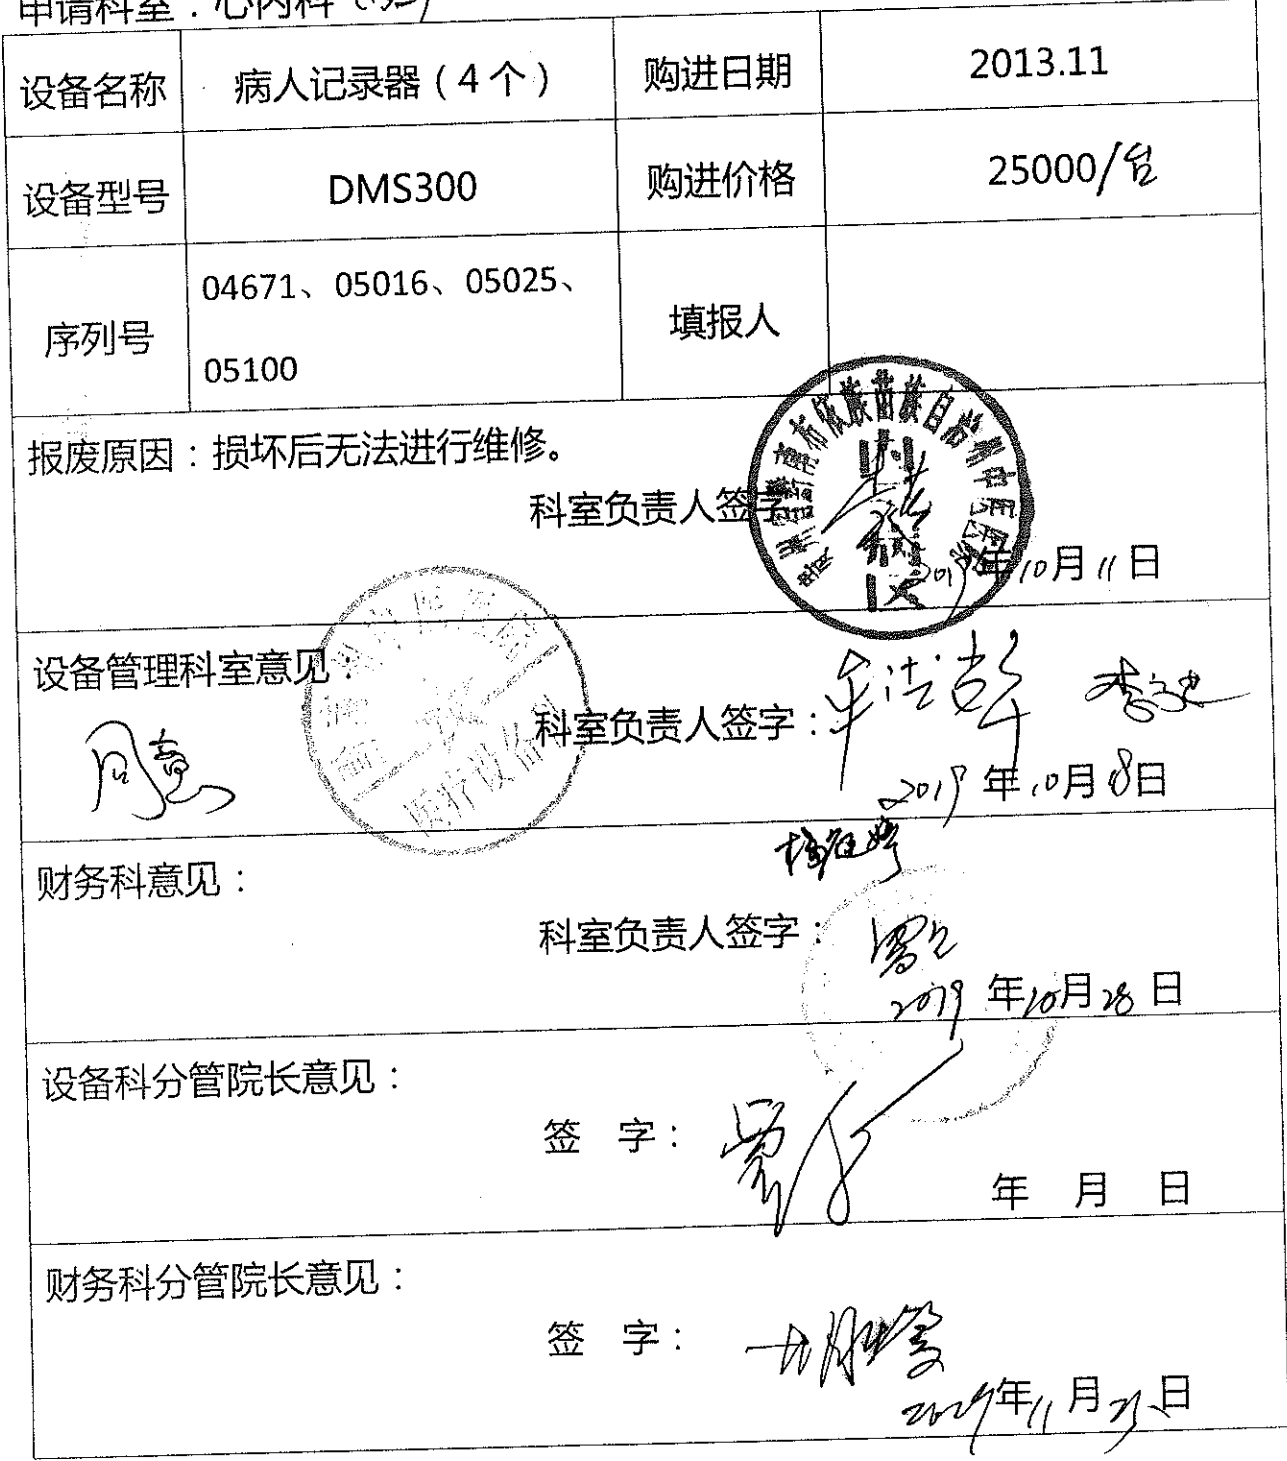 申请科室：心内科
设备名称 病人记录器（4个） 购进日期 2013.11
设备型号 DMS300 购进价格 25000/台
序列号 04671、05016、05025、05100 填报人
报废原因：损坏后无法进行维修。
科室负责人签字
2019年10月11日
贵州省黔南布依族苗族自治州中医医院
设备管理科室意见：
同意
医疗设备科
科室负责人签字：
2019年10月18日
财务科意见：
科室负责人签字：
2019年10月28日
设备科分管院长意见：
签 字：
年 月 日
财务科分管院长意见：
签 字：
年11月 日